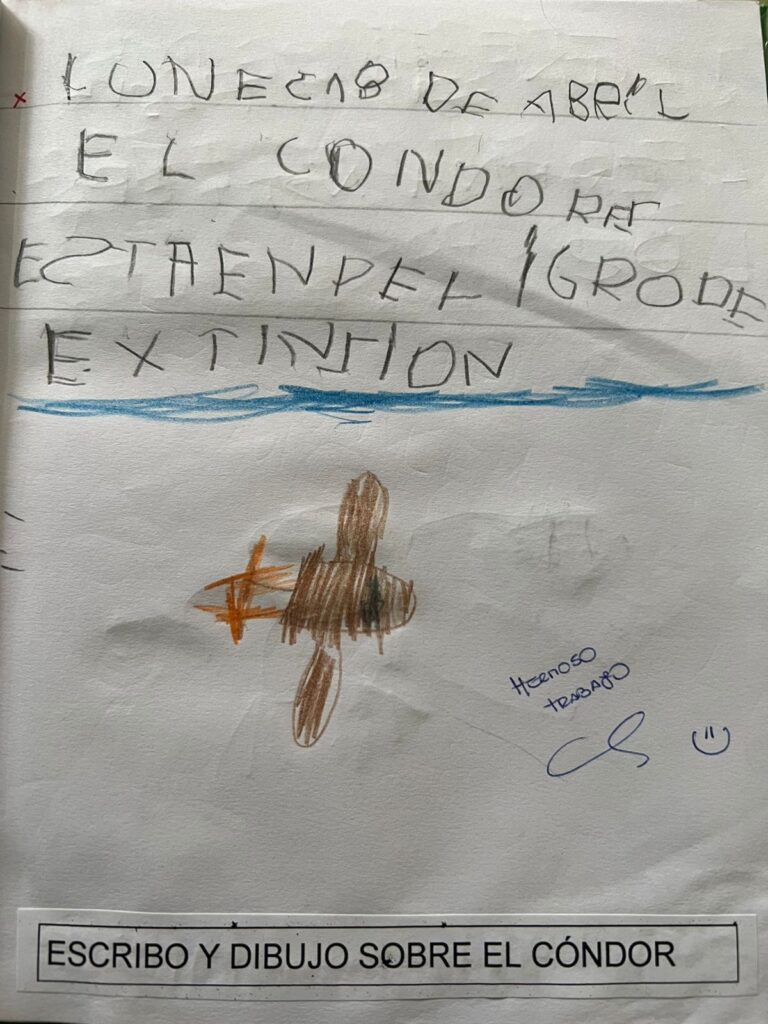 LUNES 18 DE ABRIL
EL CONDOR
ESTAENPELIGRODE
EXTINHON
HERMOSO
TRABAJO
ESCRIBO Y DIBUJO SOBRE EL CÓNDOR